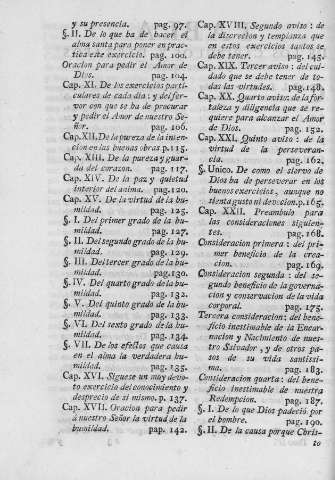 y su presencia. pag. 97.
§. II. De lo que ba de bacer el
alma santa para poner en prac-
tica este exercicio. pag. 100.
Oracion para pedir el Amor de
Dios. pag. 104.
Cap. XI. De los exercicios parti-
culares de cada dia: y del fer-
vor con que se ba de procurar
y pedir el Amor de nuestro Se-
ñor. pag. 106.
Cap. XII. De la pureza de la inten-
cion en las buenas obras p. 115.
Cap. XIII. De la pureza y guar-
da del corazon. pag. 117.
Cap. XIV. De la paz y quietud
interior del anima. pag. 120.
Cap. XV. De la virtud de la hu-
mildad. pag. 125.
§. I. Del primer grado de la hu-
mildad. pag. 127.
§. II. Del segundo grado de la hu-
mildad. pag. 129.
§. III. Del tercer grado de la hu-
mildad. pag. 130.
§. IV. Del quarto grado de la hu-
mildad. pag. 132.
§. V. Del quinto grado de la hu-
mildad. pag. 133.
§. VI. Del sexto grado de la hu-
mildad. pag. 134.
§. VII. De los efectos que causa
en el alma la verdadera hu-
mildad. pag. 135.
Cap. XVI. Siguese un muy devo-
to exercicio del conocimiento y
desprecio de si mismo. p. 137.
Cap. XVII. Oracion para pedir
á nuestro Señor la virtud de la
humildad. pap. 142.
Cap. XVIII, Segundo aviso: de
la discrecion y templanza que
en estos exercicios santos se
debe tener. pag. 145.
Cap. XIX. Tercer aviso: del cui-
dado que se debe tener de to-
das las virtudes. pag. 148.
Cap. XX. Quarto aviso: de la for-
taleza y diligencia que se re-
quiere para alcanzar el Amor
de Dios. pag. 152.
Cap. XXI. Quinto aviso: de la
virtud de la perseveran-
cia. pag. 162.
§. Unico. De como el siervo de
Dios ba de perseverar en los
buenos exercicios, aunque no
sienta gusto ni devocion. p. 165.
Cap. XXII. Preambulo para
las consideraciones siguien-
tes. pag. 168.
Consideracion primera: del pri-
mer beneficio de la crea-
cion. pag. 169.
Consideracion segunda: del se-
gundo beneficio de la governa-
cion y conservacion de la vida
corporal. pag. 175.
Tercera consideracion: del bene-
ficio inestimable de la Encar-
nacion y Nacimiento de nues-
tro Salvador, y de otros pa-
sos de su vida santissi-
ma. pag. 183.
Consideracion quarta: del bene-
ficio inestimable de nuestra
Redempcion. pag. 187.
§. I. De lo que Dios padeció por
el hombre. pag. 190.
§. II. De la causa porque Chris-
to